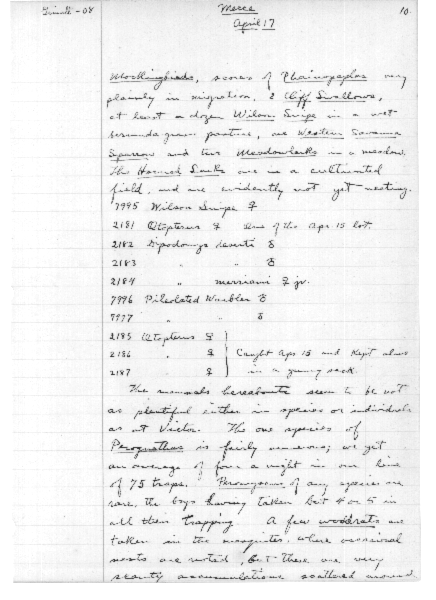 Mecca
10
April 17
Mockingbirds, scores of Phainopeplas very
plainly in migration, 2 Cliff Swallows,
at least a dozen Wilson Snipe in a wet
bermuda grass pasture, one Western Savanna
Sparrow and two Meadowlarks in a meadow.
The Horned Larks are in a cultivated
field, and are evidently not yet nesting.
7995 Wilson Snipe ♀
2181 Otopterus ♀ one of the Apr 15 lot.
2182 Dipodomys deserti ♂
2183 " " ♂
2184 " merriami ♀ jr.
7996 Pileolated Warbler ♂
7997 " " ♂
2185 Otopterus ♀
2186 " ♀ Caught Apr 15 and kept alive
2187 " ♀ in a gunny sack.
The mammals hereabouts seem to be not
as plentiful either in species or individuals
as at Victor. The one species of
Perognathus is fairly numerous; we get
an average of four a night in our line
of 75 traps. Peromyscus of any species are
rare, the boys having taken but 4 or 5 in
all their trapping. A few woodrats are
taken in the mesquites, where occasional
nests are noted, but these are very
scanty accumulations scattered around